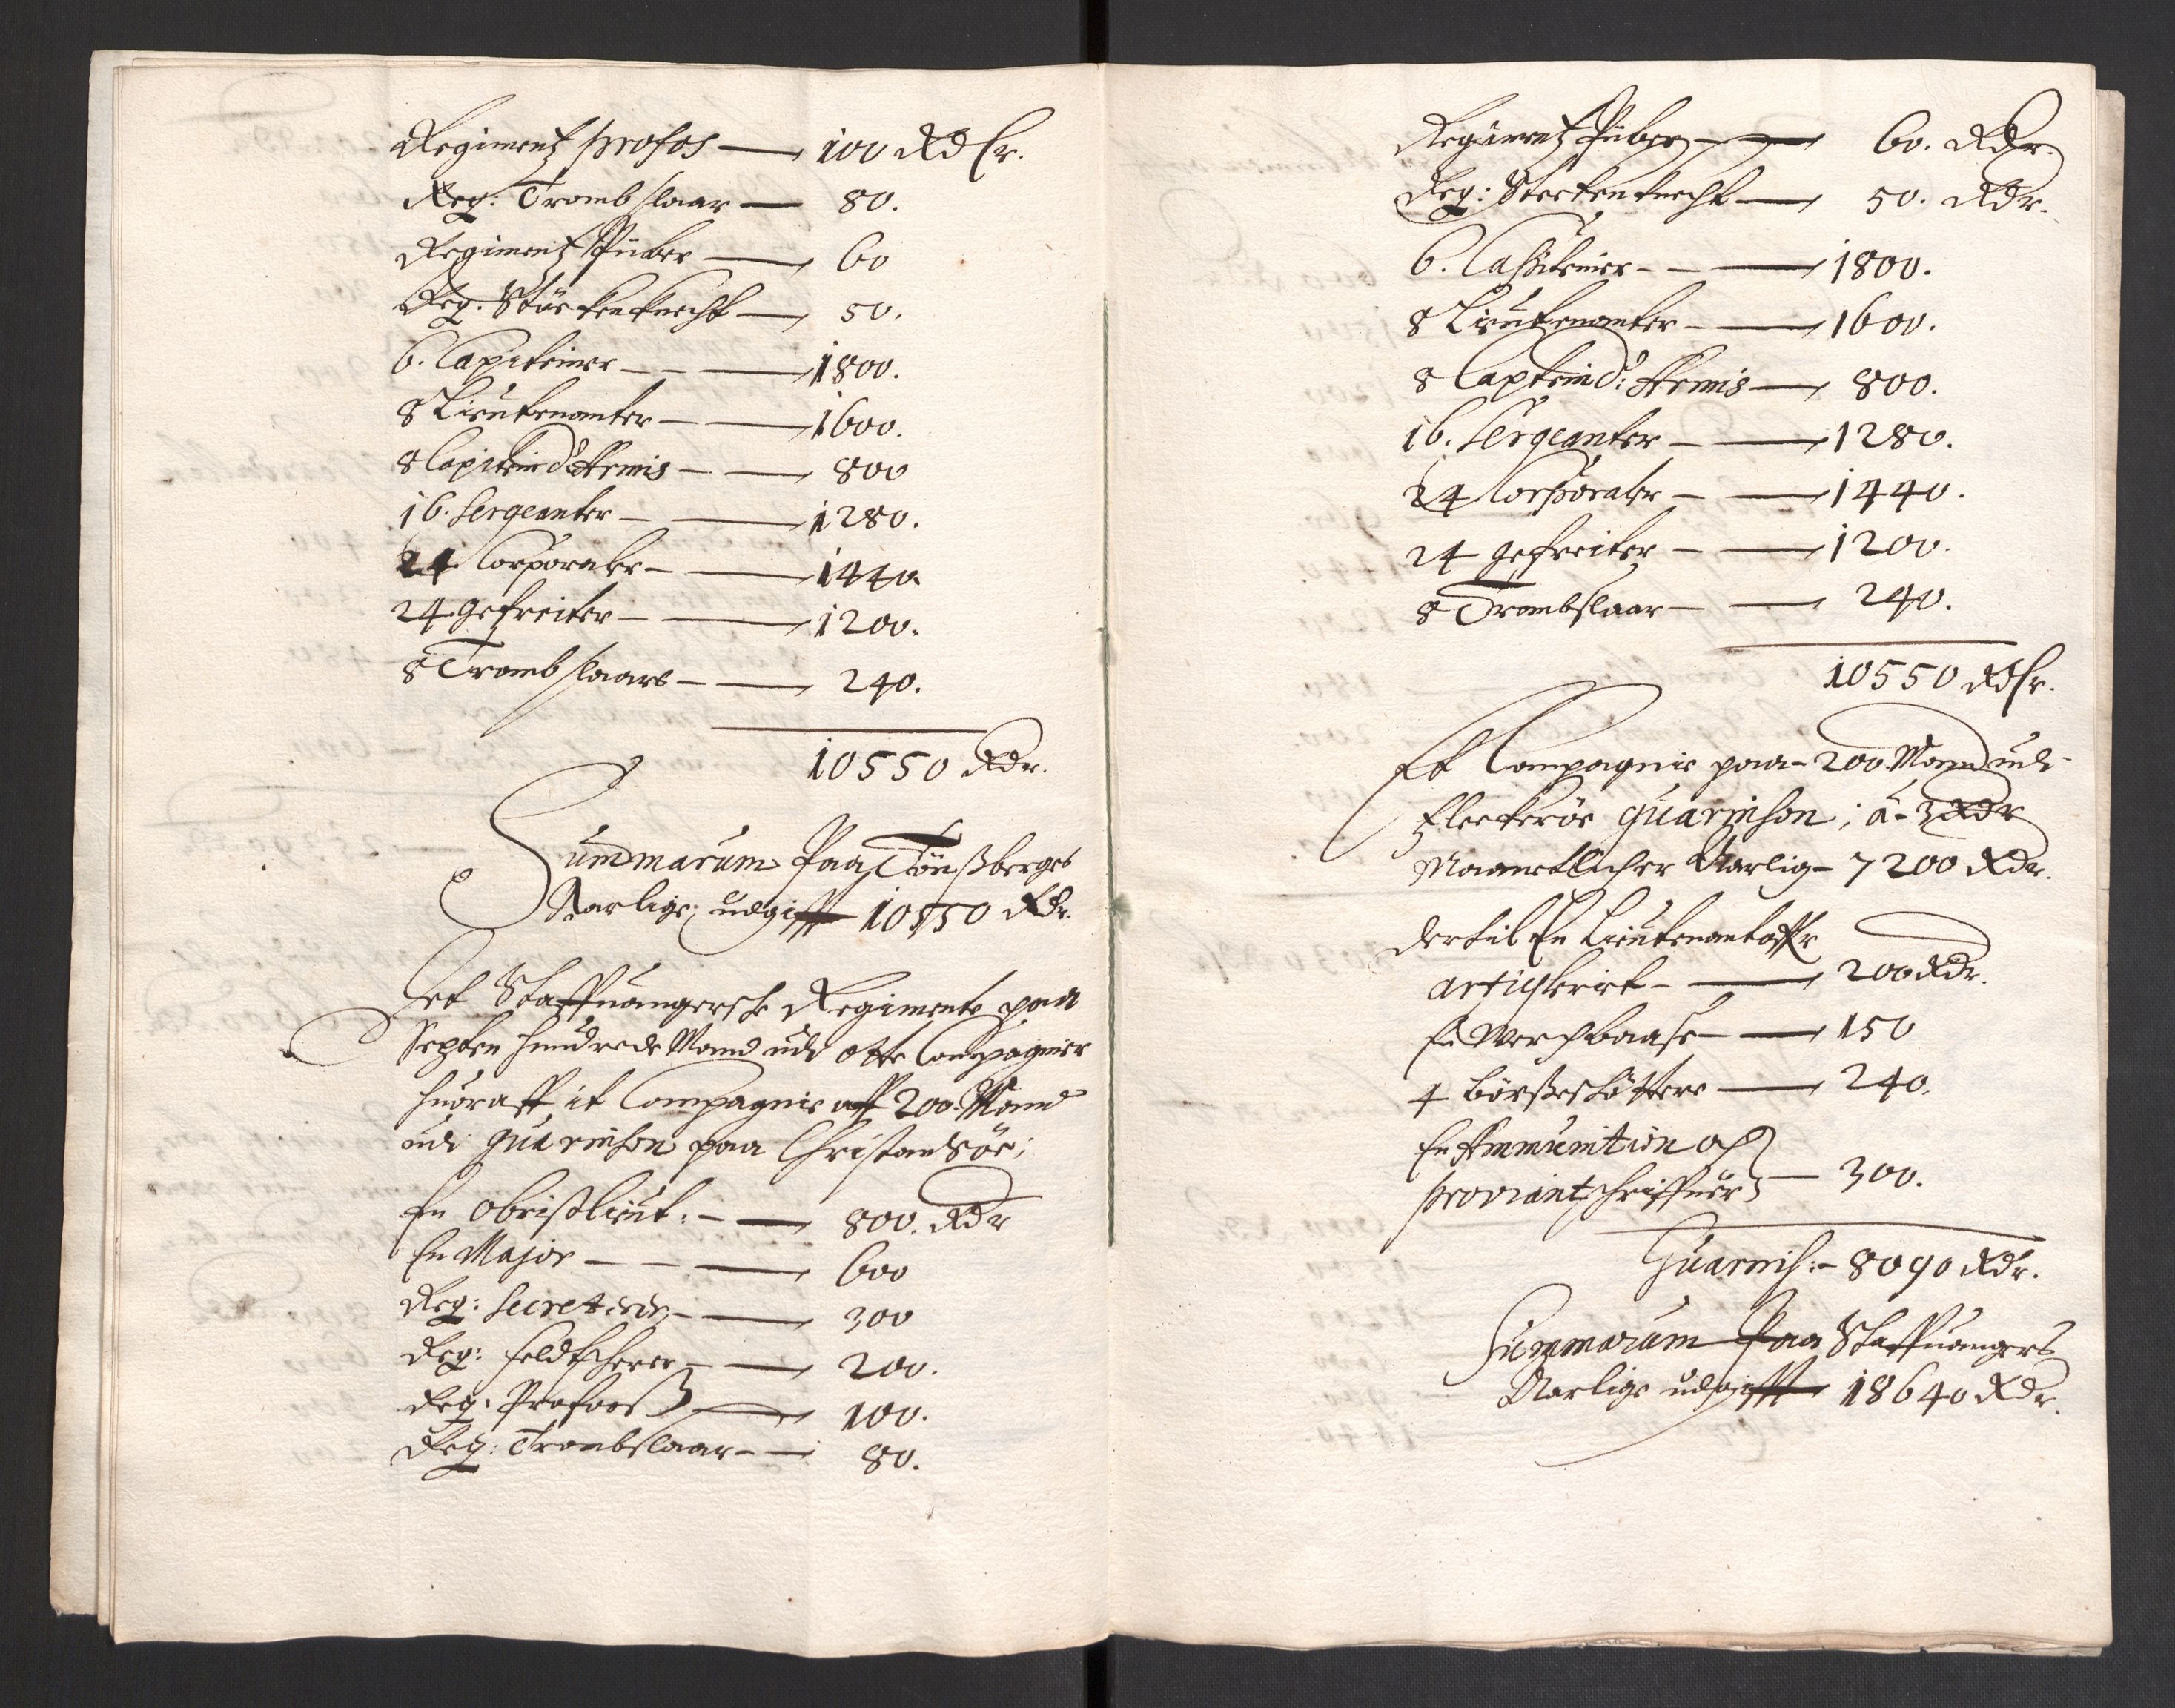 Regimentz profos — 100 Rdlr.
Reg: Trombslaar — 80.
Regimentz Piiber — 60
Reg: Störkenknecht — 50.
6. Capiteiner — 1800.
8 Lieutenanter — 1600.
8 Capitein d'Armis — 800
16. Sergeanter — 1280.
24 Corporaler — 1440
24 gefreiter — 1200.
8 Trombslaare — 240.
10550 Rdr.
Summarum Paa Tönsberges
Aarlige udgifft 10550 Rdr.
Det Staffuangersche Regimente paa
Septen hundrede Mand udi otte Compagnier
huoraff it Compagnie aff 200 Mand
udi guarnison paa Christiansöe;
En Obristlieut: — 800. Rdr
En Major — 600
Reg: Secreterer — 300
Reg: feldtscherer — 200.
Reg: Profoss — 100.
Reg: Trombslaar — 80.
Regimentz Piiber — 60. Rdr.
Reg: Steckenknecht — 50. Rdr.
6. Capiteiner — 1800.
8 Lieutenanter — 1600.
8 Captein d: Armis — 800.
16. Sergeanter — 1280.
24 Corporaler — 1440.
24 gefreiter — 1200.
8 Trombslaar — 240.
10550 Rdlr.
Et Compagnie paa 200 Mand udi
Fleckeröe guarnison; á 3 Rdr
Maanetlicher Aarlig 7200 Rdr.
dertil En Lieutenant aff
artiglerict — 200 Rdr.
En Werchbaase — 150
4 börsseskötter — 240.
En Ammunition och
proviantschriffuer — 300.
Guarnis: 8090 Rdr.
Summarum Paa Staffuangers
Aarlige udgifft 18640 Rdr.